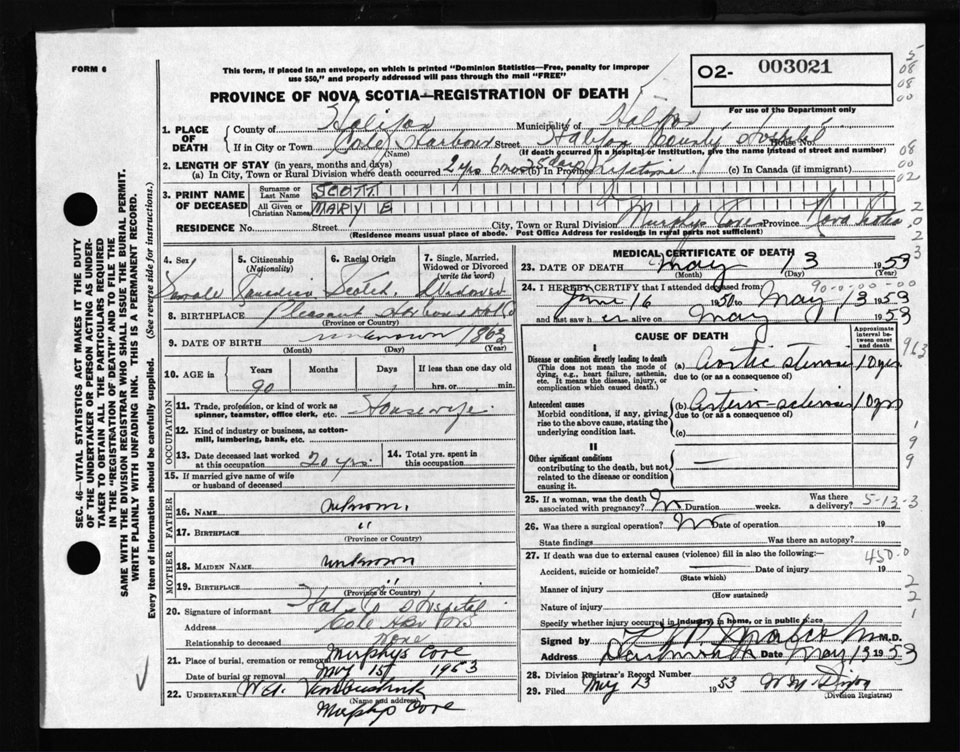 FORM 6
This form, if placed in an envelope, on which is printed "Dominion Statistics—Free, penalty for improper
use $50," and properly addressed will pass through the mail "FREE"
PROVINCE OF NOVA SCOTIA—REGISTRATION OF DEATH
02- 003021
For use of the Department only
5
08
08
00
1. PLACE OF DEATH
County of Halifax Municipality of Halifax
If in City or Town Cole Harbour Street Halifax County Hospital House No.
(Name) (If death occurred in a hospital or Institution, give the name instead of street and number)
2. LENGTH OF STAY (in years, months and days)
(a) In City, Town or Rural Division where death occurred 2 yrs 6 mos 28 days (b) In Province lifetime (c) In Canada (if immigrant)
08
00
02
3. PRINT NAME OF DECEASED
Surname or Last Name SCOTT
All Given or Christian Names MARY E
RESIDENCE No. Street City, Town or Rural Division Murphys Cove Province Nova Scotia
(Residence means usual place of abode. Post Office Address for residents in rural parts not sufficient)
2
0
2
3
4. Sex 5. Citizenship (Nationality) 6. Racial Origin 7. Single, Married, Widowed or Divorced (write the word)
Female Canadian Scotch Widowed
8. BIRTHPLACE Pleasant Harbour
(Province or Country)
9. DATE OF BIRTH unknown 1862
(Month) (Day) (Year)
10. AGE in Years Months Days If less than one day
90 hrs. or min.
OCCUPATION
11. Trade, profession, or kind of work as spinner, teamster, office clerk, etc. Housewife
12. Kind of industry or business, as cotton-mill, lumbering, bank, etc.
13. Date deceased last worked at this occupation 20 yrs 14. Total yrs. spent in this occupation
15. If married give name of wife or husband of deceased
FATHER
16. NAME unknown
17. BIRTHPLACE "
(Province or Country)
MOTHER
18. MAIDEN NAME unknown
19. BIRTHPLACE "
(Province or Country)
20. Signature of informant Hospital
Address Cole Hbr NS
Relationship to deceased None
21. Place of burial, cremation or removal Murphys Cove
Date of burial or removal May 15 1953
22. UNDERTAKER
(Name and address)
Murphys Cove
MEDICAL CERTIFICATE OF DEATH
23. DATE OF DEATH May 13 1953
(Month) (Day) (Year)
24. I HEREBY CERTIFY that I attended deceased from:
90-0-00-00
June 16 1951 to May 13 1953
and last saw her alive on May 1953
CAUSE OF DEATH
Approximate interval between onset and death
I
Disease or condition directly leading to death
(This does not mean the mode of dying, e.g., heart failure, asthenia, etc. It means the disease, injury, or complication which caused death.)
(a) Aortic stenosis 10 yrs
due to (or as a consequence of)
963
Antecedent causes
Morbid conditions, if any, giving rise to the above cause, stating the underlying condition last.
(b) Arterio-sclerosis 10 yrs
due to (or as a consequence of)
(c)
II
Other significant conditions
contributing to the death, but not related to the disease or condition causing it.
1
9
9
25. If a woman, was the death associated with pregnancy? No Duration weeks. Was there a delivery?
5-13-3
26. Was there a surgical operation? No Date of operation 19
State findings Was there an autopsy?
27. If death was due to external causes (violence) fill in also the following:
450-0
Accident, suicide or homicide? Date of injury 19
(State which)
Manner of injury
(How sustained)
Nature of injury
Specify whether injury occurred in industry, in home, or in public place
2
2
1
Signed by M.D.
Address Dartmouth Date May 13 1953
28. Division Registrar's Record Number
29. Filed May 13 1953
(Division Registrar)
SEC. 46—VITAL STATISTICS ACT MAKES IT THE DUTY
OF THE UNDERTAKER OR PERSON ACTING AS UNDER-
TAKER TO OBTAIN ALL THE PARTICULARS REQUIRED
IN THE "REGISTRATION OF DEATH" AND TO FILE THE
SAME WITH THE DIVISION REGISTRAR WHO SHALL ISSUE THE BURIAL PERMIT.
WRITE PLAINLY WITH UNFADING INK. THIS IS A PERMANENT RECORD.
Every item of information should be carefully supplied. (See reverse side for instructions.)